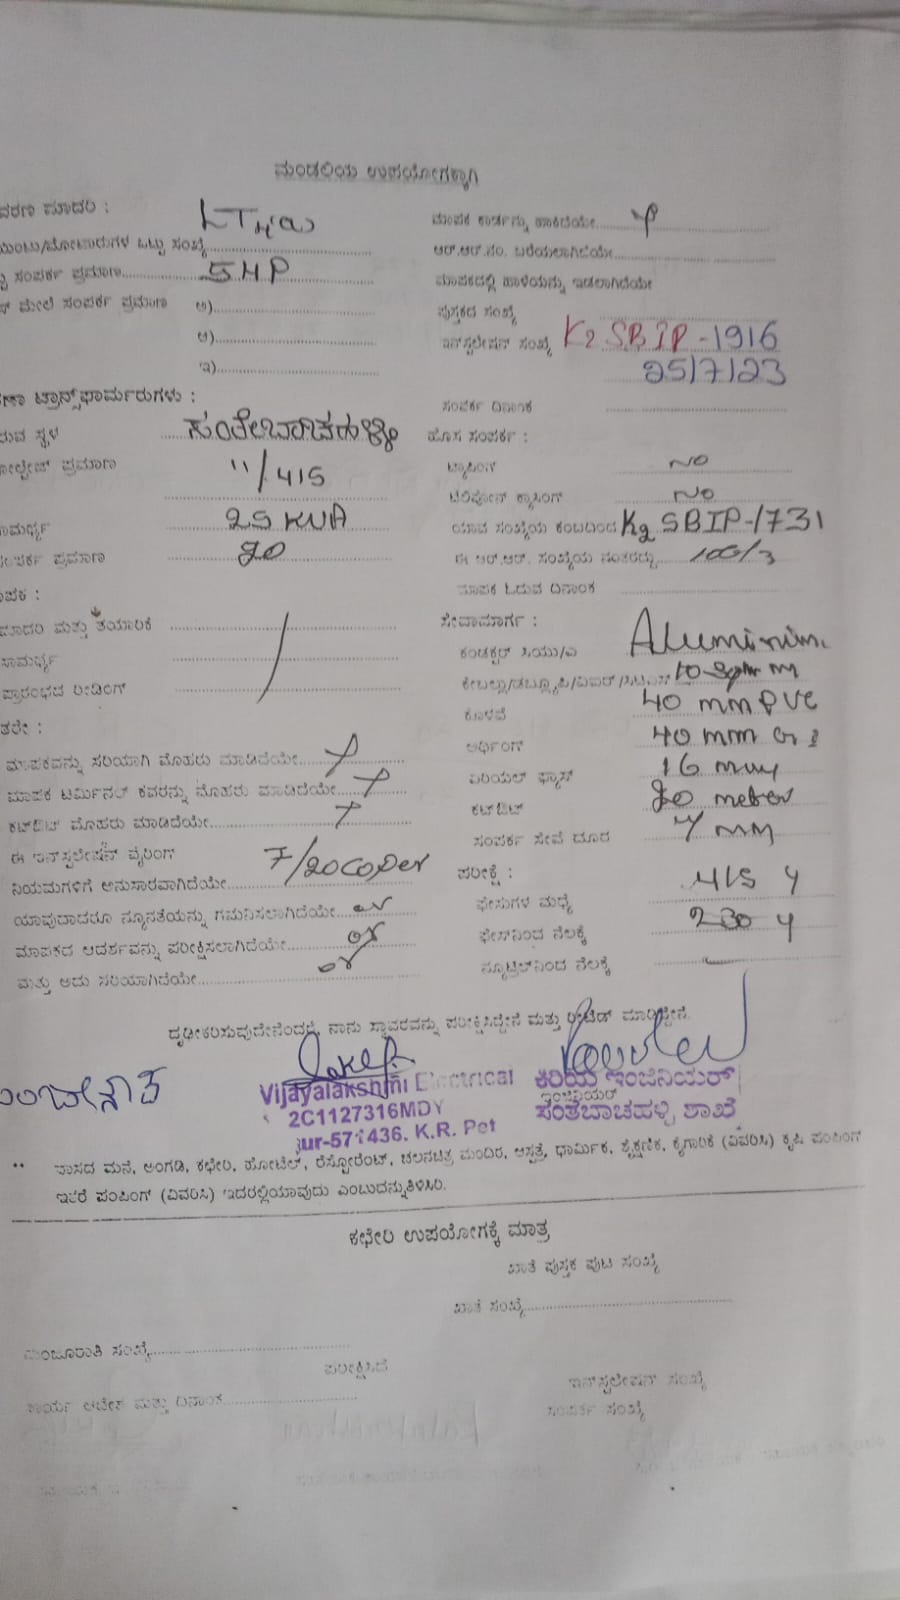 ಮಂಡಲಿಯ ಉಪಯೋಗಕ್ಕಾಗಿ
ವರಣ ಮಾದರಿ :
ಮಾಪಕ ಕಾರ್ಡನ್ನು ಹಾಕಿದೆಯೇ
ಒಟ್ಟು ಸಂಖ್ಯೆ
ಆರ್.ಆರ್.ನಂ. ಬರೆಯಲಾಗಿದೆಯೇ
ಸಂಪರ್ಕ ಪ್ರಮಾಣ 5HP
ಮಾಪಕದಲ್ಲಿ ಹಾಳೆಯನ್ನು ಇಡಲಾಗಿದೆಯೇ
ಮೇಲೆ ಸಂಪರ್ಕ ಪ್ರಮಾಣ ಅ)
ಪುಸ್ತಕದ ಸಂಖ್ಯೆ
ಆ)
ಇನ್‌ಸ್ಟಲೇಷನ್ ಸಂಖ್ಯೆ K2 SBIP-1916
ಇ)
25/7/23
ಸಂಪರ್ಕ ದಿನಾಂಕ
ಟ್ರಾನ್ಸ್‌ಫಾರ್ಮರುಗಳು :
ಸ್ಥಳ
ಹೊಸ ಸಂಪರ್ಕ :
ಪ್ರಮಾಣ 11/415
ಟ್ಯಾಪಿಂಗ್ NO
ಟೆಲಿಫೋನ್ ಕ್ರಾಸಿಂಗ್ NO
ಸಾಮರ್ಥ್ಯ 25 KVA
ಯಾವ ಸಂಖ್ಯೆಯ ಕಂಬದಿಂದ K2 SBIP-1731
ಸಂಪರ್ಕ ಪ್ರಮಾಣ 20
ಈ ಆರ್.ಆರ್. ಸಂಖ್ಯೆಯ ನಂತರದ್ದು 100/3
ಮಾಪಕ ಓದುವ ದಿನಾಂಕ
ಮಾಪಕ :
ಮಾದರಿ ಮತ್ತು ತಯಾರಿಕೆ
ಸೇವಾಮಾರ್ಗ :
ಸಾಮರ್ಥ್ಯ
ಕಂಡಕ್ಟರ್ ಸಿಯು/ಎ Aluminim
ಪ್ರಾರಂಭದ ರೀಡಿಂಗ್
10 Sqmm
ಕೊಳವೆ 40 mm PVC
ಇತರೇ :
ಮಾಪಕವನ್ನು ಸರಿಯಾಗಿ ಮೊಹರು ಮಾಡಿದೆಯೇ
ಅರ್ಥಿಂಗ್ 40 mm GI
ಮಾಪಕ ಟರ್ಮಿನಲ್ ಕವರನ್ನು ಮೊಹರು ಮಾಡಿದೆಯೇ
ಏರಿಯಲ್ ಫ್ಯೂಸ್ 16
ಕಟ್‌ಔಟ್ ಮೊಹರು ಮಾಡಿದೆಯೇ
ಕಟ್‌ಔಟ್ 20 meter
ಈ ಇನ್‌ಸ್ಟಲೇಷನ್ ವೈರಿಂಗ್
ಸಂಪರ್ಕ ಸೇವೆ ದೂರ
ನಿಯಮಗಳಿಗೆ ಅನುಸಾರವಾಗಿದೆಯೇ 7/20 coper
ಪರೀಕ್ಷೆ :
ಯಾವುದಾದರೂ ನ್ಯೂನತೆಯನ್ನು ಗಮನಿಸಲಾಗಿದೆಯೇ
ಫೇಸುಗಳ ಮಧ್ಯೆ 415 V
ಮಾಪಕದ ಆದರ್ಶವನ್ನು ಪರೀಕ್ಷಿಸಲಾಗಿದೆಯೇ
ಫೇಸ್‌ನಿಂದ ನೆಲಕ್ಕೆ 230 V
ಮತ್ತು ಅದು ಸರಿಯಾಗಿದೆಯೇ
ನ್ಯೂಟ್ರಲ್‌ನಿಂದ ನೆಲಕ್ಕೆ
ದೃಢೀಕರಿಸುವುದೇನೆಂದರೆ, ನಾನು ಸ್ಥಾವರವನ್ನು ಪರೀಕ್ಷಿಸಿದ್ದೇನೆ ಮತ್ತು ರೀಟೆಡ್ ಮಾಡಿದ್ದೇನೆ.
Vijayalakshmi Electrical
2C1127316MDY
ur-571436. K.R. Pet
ಕಿರಿಯ ಇಂಜಿನಿಯರ್
ಇಂಜಿನಿಯರ್
ಸಂತೆಬಾಚಹಳ್ಳಿ ಶಾಖೆ
** ವಾಸದ ಮನೆ, ಅಂಗಡಿ, ಕಛೇರಿ, ಹೋಟೆಲ್, ರೆಸ್ಟೋರೆಂಟ್, ಚಲನಚಿತ್ರ ಮಂದಿರ, ಆಸ್ಪತ್ರೆ, ಧಾರ್ಮಿಕ, ಶೈಕ್ಷಣಿಕ, ಕೈಗಾರಿಕೆ (ವಿವರಿಸಿ) ಕೃಷಿ ಪಂಪಿಂಗ್
ಇತರೆ ಪಂಪಿಂಗ್ (ವಿವರಿಸಿ) ಇದರಲ್ಲಿಯಾವುದು ಎಂಬುದನ್ನುತಿಳಿಸಿರಿ.
ಕಛೇರಿ ಉಪಯೋಗಕ್ಕೆ ಮಾತ್ರ
ಖಾತೆ ಪುಸ್ತಕ ಪುಟ ಸಂಖ್ಯೆ
ಖಾತೆ ಸಂಖ್ಯೆ
ಮಂಜೂರಾತಿ ಸಂಖ್ಯೆ
ಪರೀಕ್ಷಿಸಿದೆ
ಇನ್‌ಸ್ಟಲೇಷನ್ ಸಂಖ್ಯೆ
ಕಾರ್ಯ ಆದೇಶ ಮತ್ತು ದಿನಾಂಕ
ಸಂಪರ್ಕ ಸಂಖ್ಯೆ